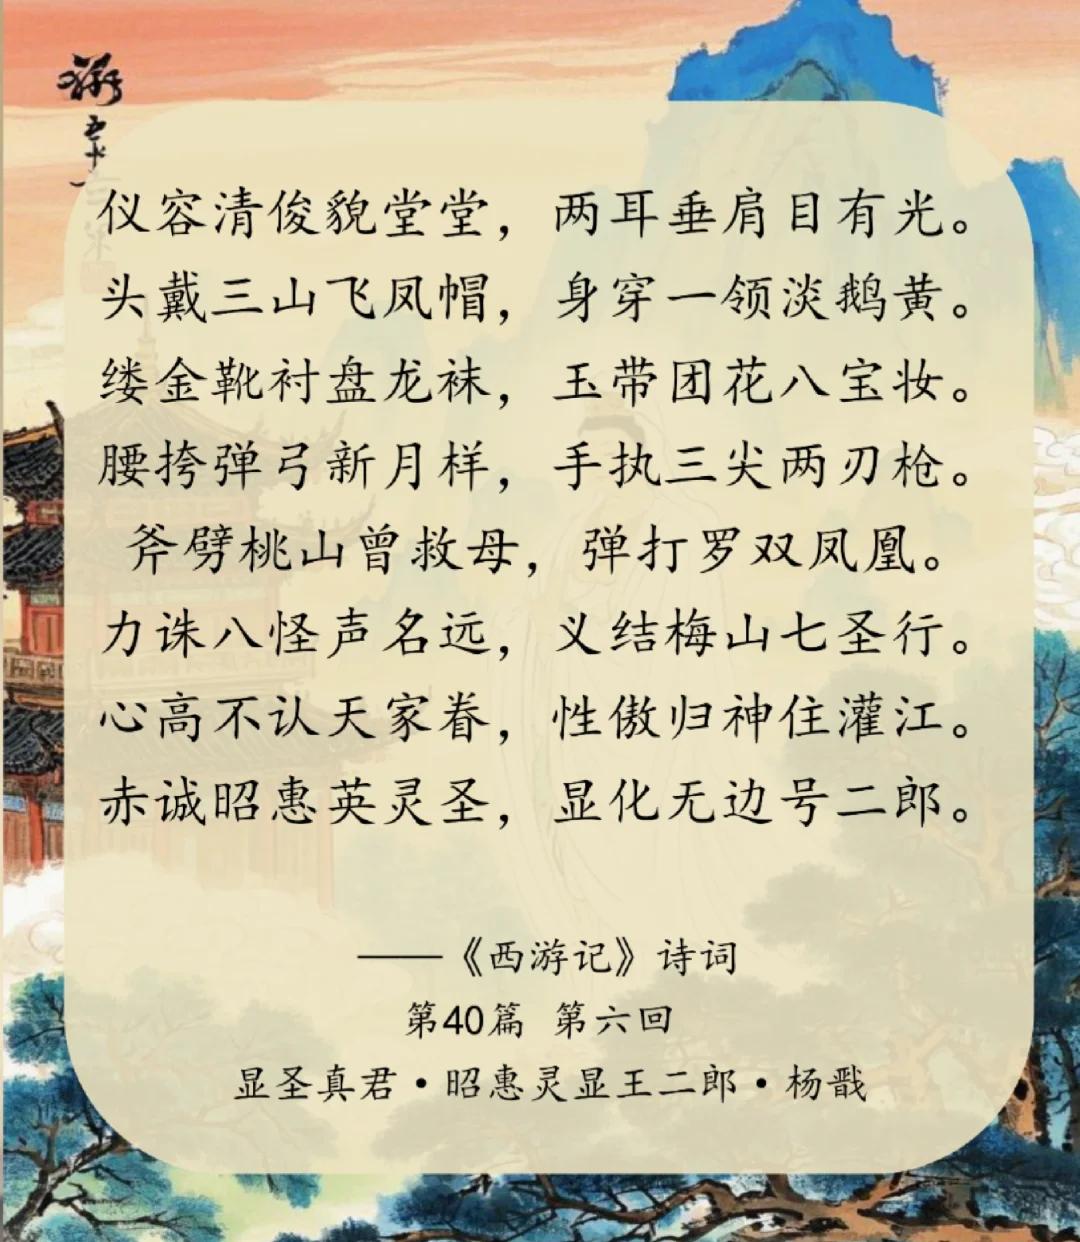 仪容清俊貌堂堂，两耳垂肩目有光。
头戴三山飞凤帽，身穿一领淡鹅黄。
缕金靴衬盘龙袜，玉带团花八宝妆。
腰挎弹弓新月样，手执三尖两刃枪。
斧劈桃山曾救母，弹打罗双凤凰。
力诛八怪声名远，义结梅山七圣行。
心高不认天家眷，性傲归神住灌江。
赤诚昭惠英灵圣，显化无边号二郎。
——《西游记》诗词
第40篇 第六回
显圣真君·昭惠灵显王二郎·杨戬